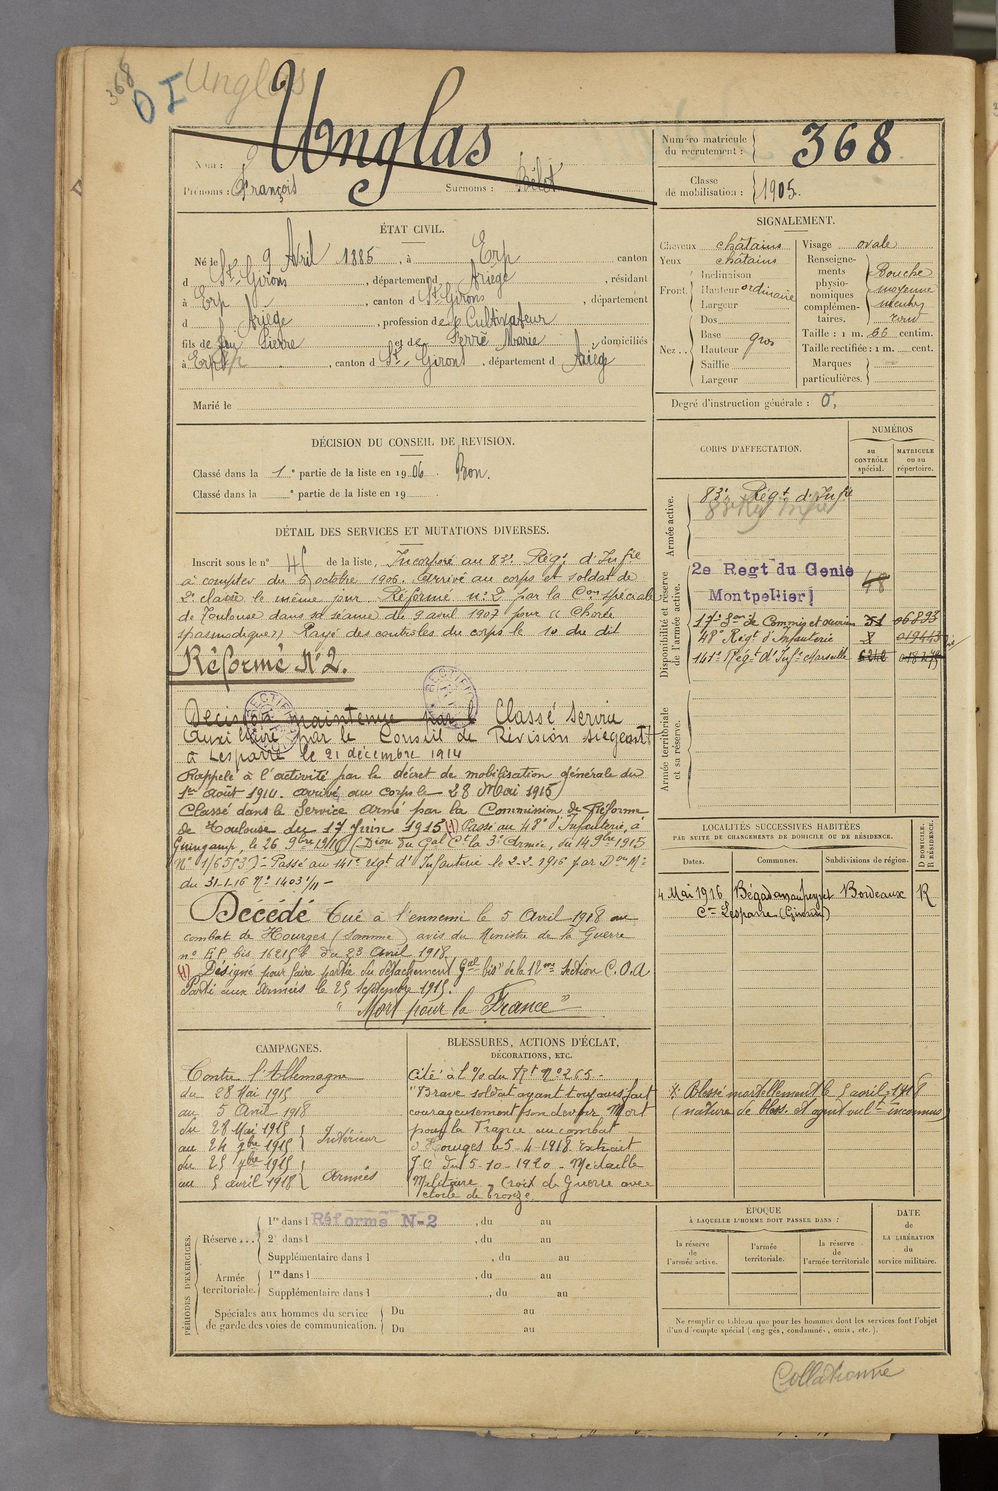 368
O I
Unglas
Unglas
Nom :
Prénoms : François Surnoms : Bélot
Numéro matricule du recrutement : 368
Classe de mobilisation : 1905.
ÉTAT CIVIL.
Né le 9 Avril 1885, à Erp canton
d St Girons, département d Ariège, résidant
à Erp, canton d St Girons, département
d Ariège, profession de Cultivateur
fils de feu Pierre et de Ferré Marie domiciliés
à Erp, canton d St Girons, département d Ariège
Marié le
SIGNALEMENT.
Cheveux châtains
Yeux châtains
Front. Inclinaison
Hauteur ordinaire
Largeur
Nez Dos
Base
Hauteur gros
Saillie
Largeur
Visage ovale
Renseignements physionomiques complémentaires. Bouche
moyenne
menton
rond
Taille : 1 m. 66 centim.
Taille rectifiée : 1 m. cent.
Marques particulières.
Degré d'instruction générale : 0.
DÉCISION DU CONSEIL DE REVISION.
Classé dans la 1e partie de la liste en 1906. Bon.
Classé dans la e partie de la liste en 19
DÉTAIL DES SERVICES ET MUTATIONS DIVERSES.
Inscrit sous le n° de la liste, Incorporé au 83e Régt d'Infie
à compter du 6 octobre 1906. Arrivé au corps et soldat de
2e classe le même jour. Réformé n° 2 par la Con spéciale
de Toulouse dans sa séance du 9 avril 1907 pour "Chorée
spasmodique". Rayé des contrôles du corps le 10 du dit
Réformé N°2.
RECTIFIÉ
RECTIFIÉ
Décision maintenue par le Classé Service
Auxiliaire par le Conseil de Révision siégeant
à Lesparre le 21 décembre 1914
Rappelé à l'activité par le décret de mobilisation générale du
1er août 1914. arrivé au corps le 28 Mai 1915
Classé dans le Service Armé par la Commission de Réforme
de Toulouse du 17 Juin 1915 (1) Passé au 48e d'Infanterie, à
Guingamp, le 26 9bre 1915 (Dion du Gal Ct la 3e Armée, du 14 9bre 1915
N° 1/6575) - Passé au 141e régt d'Infanterie le 2-2-1916 par Don Mle
du 31-1-16 N° 1403 1/11 -
Décédé Tué à l'ennemi le 5 Avril 1918 au
combat de Hourges (Somme) avis du Ministre de la Guerre
du 23 Avril 1918
(1) Désigné pour faire partie du détachement "Gal bis" de la 17me Section C.O.A
Parti aux Armées le 25 Septembre 1915.
"Mort pour la France"
CORPS D'AFFECTATION.
NUMÉROS
au CONTRÔLE spécial.
MATRICULE ou au répertoire.
Armée active.
83e Régt d'Infie
83e Rég Infie
Disponibilité et réserve de l'armée active.
2e Regt du Genie 48
Montpellier
17e Son de Commis et ouvriers 06893
48e Régt d'Infanterie
141e Régt d'Infie Marseille
Armée territoriale et sa réserve.
LOCALITÉS SUCCESSIVES HABITÉES
PAR SUITE DE CHANGEMENTS DE DOMICILE OU DE RÉSIDENCE.
Dates. Communes. Subdivisions de région. D DOMICILE. R RÉSIDENCE.
4 Mai 1916 Bégadan Bordeaux R
Con Lesparre (Gironde)
CAMPAGNES.
Contre l'Allemagne
du 28 Mai 1915
au 5 Avril 1918
du 28 Mai 1915
au 24 7bre 1915 Intérieur
du 25 7bre 1915
au 5 avril 1918 Armées
BLESSURES, ACTIONS D'ÉCLAT,
DÉCORATIONS, ETC.
Cité à l'O/ du Rt N° 265 -
"Brave soldat ayant toujours fait
courageusement son devoir. Mort
pour la France au combat
d'Hourges le 5-4-1918. Extrait
J.O. du 5-10-1920 - Médaille
Militaire - Croix de Guerre avec
étoile de bronze.
X Blessé mortellement le 5 avril 1918
(nature de bless. et agent vulnt inconnus)
PÉRIODES D'EXERCICES.
Réserve... 1re dans l Réformé N=2, du au
2e dans l , du au
Supplémentaire dans l , du au
Armée territoriale. 1re dans l , du au
Supplémentaire dans l , du au
Spéciales aux hommes du service
de garde des voies de communication. Du au
Du au
ÉPOQUE
À LAQUELLE L'HOMME DOIT PASSER DANS :
la réserve de l'armée active.
l'armée territoriale.
la réserve de l'armée territoriale
DATE de LA LIBÉRATION du service militaire.
Ne remplir ce tableau que pour les hommes dont les services font l'objet
d'un décompte spécial (engagés, condamnés, omis, etc.).
Collationné